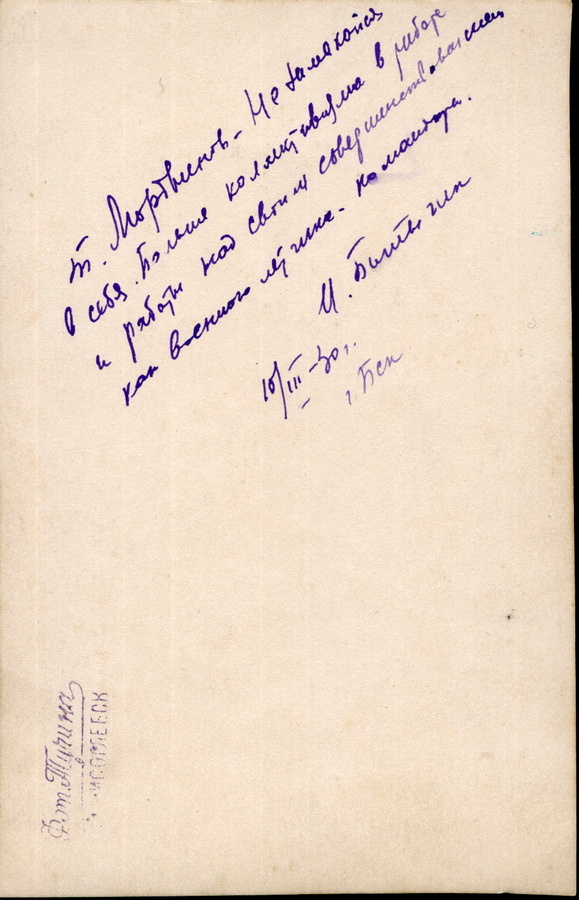 т. Мордвинов – Не замыкайся
в себя. Больше коллективизма в работе
и работы над своим совершенствованием
как военного летчика - командира.
И.
10/III – 30 г.
г. Бск
Фот. Тучина
БОРИСОГЛЕБСК